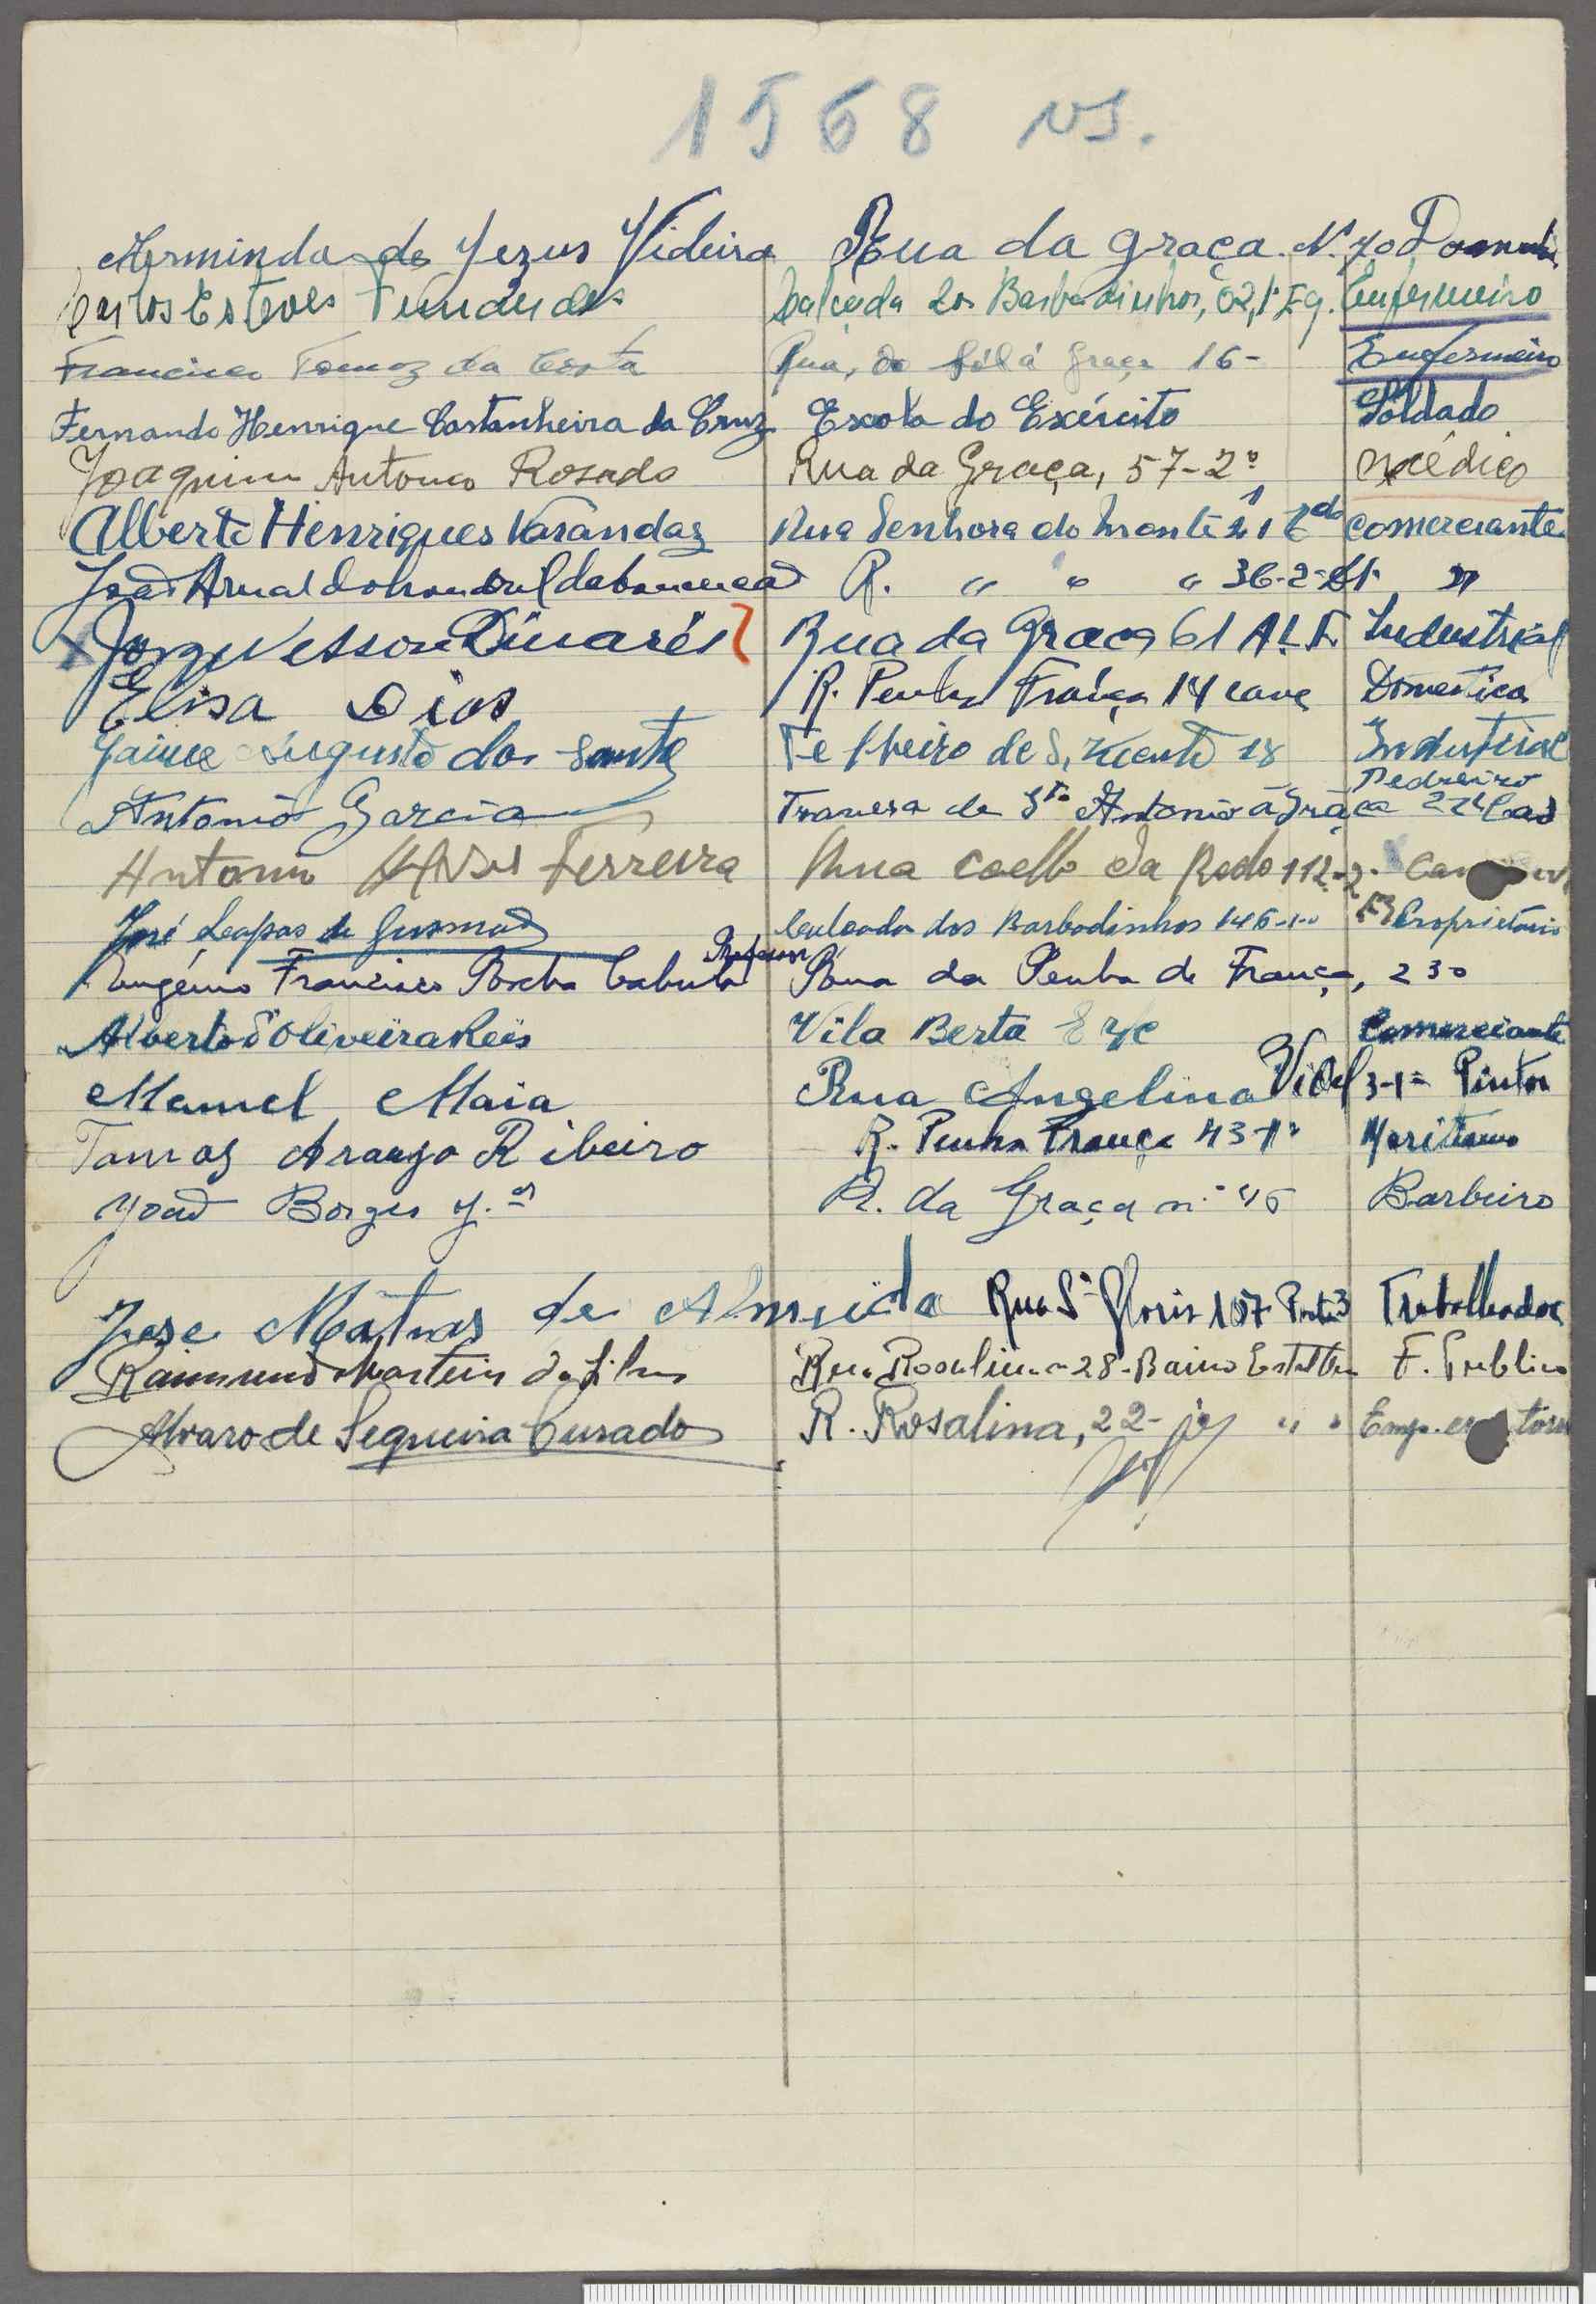 1568
Herminda de Jezus Videira Rua da graça N. 70
Carlos Esteves Fernandes Calçada dos Barbadinhos, 62, 1º Eq. Enfermeiro
Francisco Tomaz da Costa Rua, do Sól á Graça 16- Enfermeiro
Fernando Henrique Castanheira da Cruz Escola do Exército Soldado
Joaquim Antonio Rosado Rua da Graça, 57-2º Médico
Alberto Henriques Varandas Rua Senhora do Monte 21 comerciante
João Arnaldo R. " " " 36-2º "
Rua da Graça 61 Industrial
Elisa Dias R. Penha França 14 cave Domestica
Jaime Augusto dos Santos Telheiro de S. Vicente 18 Industrial
Antonio Garcia Travessa de Stº Antonio á Graça Pedreiro
Antonio Alves Ferreira Rua Coelho da Rocha 112-2º
José Lapas de Gusmão Calçada dos Barbadinhos 146-1º Proprietário
Eugénio Francisco Rocha Professor Rua da Penha de França, 230
Alberto d'Oliveira Reis Vila Berta Comerciante
Manuel Maia Rua Angelina Vidal 3-1º Pintor
Tomas Araujo Ribeiro R. Penha França 43-1º Maritimo
João Borges J.or R. da Graça nº 45 Barbeiro
Jose Matias de Almeida Rua Sª Gloria 107 Porta 3 Trabalhador
Raimundo Martins da Silva Rua Rosalina 28-Bairro F. Publico
Alvaro de Sequeira Curado R. Rosalina, 22- " "